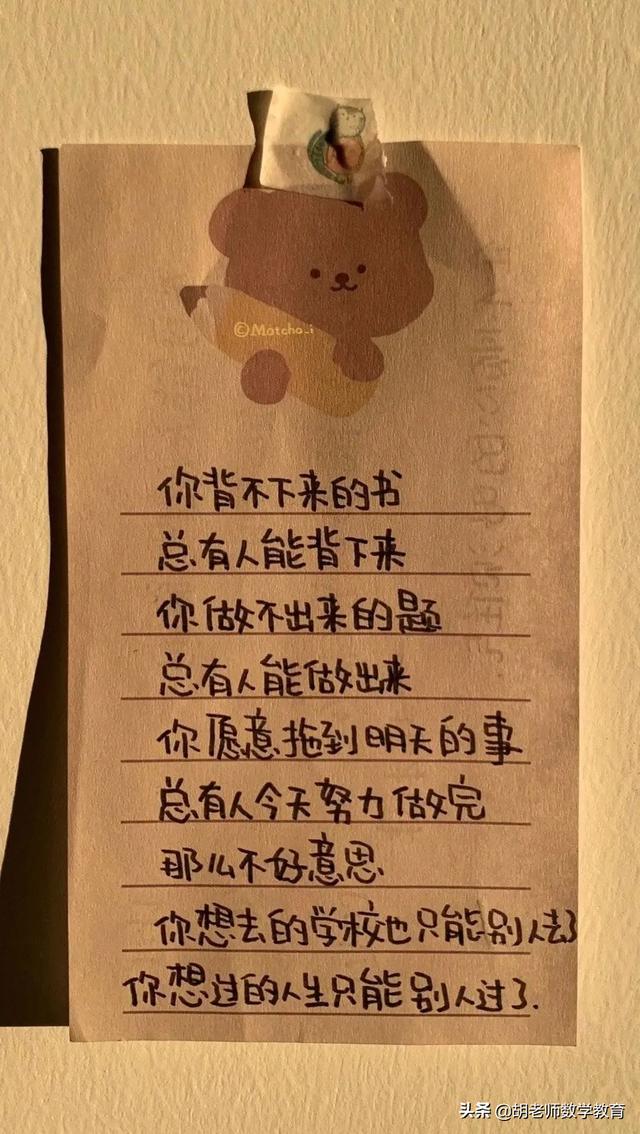 ©Matcha_i
你背不下来的书
总有人能背下来
你做不出来的题
总有人能做出来
你愿意拖到明天的事
总有人今天努力做完
那么不好意思
你想去的学校也只能别人去了
你想过的人生只能别人过了.
头条 @胡老师数学教育